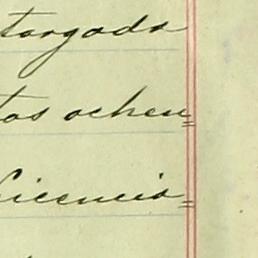 torgada
tos ochen=
licencia=